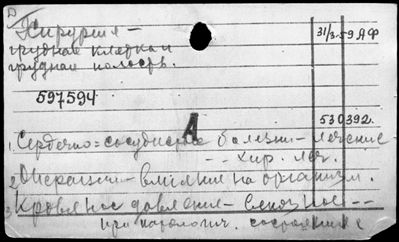 Хирургия –
31/3.59 АФ
грудная клетка и
грудная полость.
597594
А
530392.
1. Сердечно=сосудистые болезни – лечение
– – хир. леч.
2. Операции – влияние на организм.
3 Кровяное давление – венозное – –
при патологич. состояниях